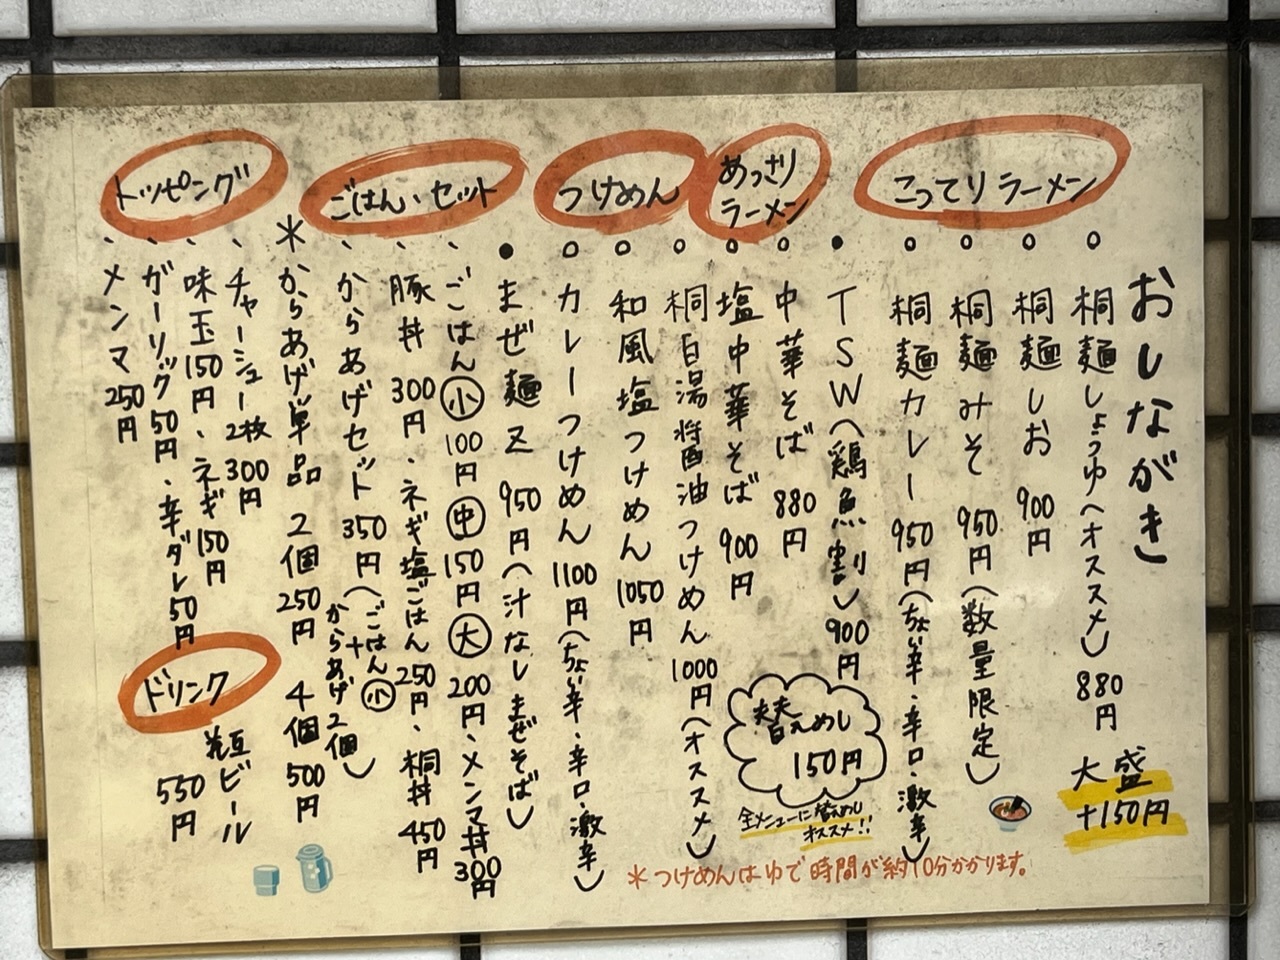 おしながき
こってりラーメン
○桐麺しょうゆ(オススメ) 880円
○桐麺しお 900円
○桐麺みそ 950円(数量限定)
○桐麺カレー 950円(ちょい辛・辛口・激辛)
●TSW(鶏魚割) 900円
大盛
+150円
あっさり
ラーメン
○中華そば 880円
○塩中華そば 900円
替えめし
150円
全メニューに替えめし
オススメ!!
つけめん
○桐白湯醤油つけめん 1000円(オススメ)
○和風塩つけめん 1050円
○カレーつけめん 1100円(ちょい辛・辛口・激辛)
●まぜ麺Z 950円(汁なしまぜそば)
*つけめんはゆで時間が約10分かかります。
ごはん・セット
、ごはん 小 100円 中 150円 大 200円、メンマ丼 300円
、豚丼 300円、ネギ塩ごはん 250円、桐丼 450円
、からあげセット 350円(ごはん小+からあげ2個)
*からあげ単品 2個 250円 4個 500円
トッピング
、チャーシュー2枚 300円
、味玉 150円、ネギ 150円
、ガーリック 50円、辛ダレ 50円
、メンマ 250円
ドリンク
瓶ビール
550円